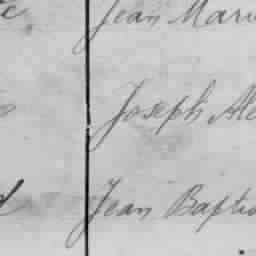 Jean Mari
Joseph Ale
Jean Baptis